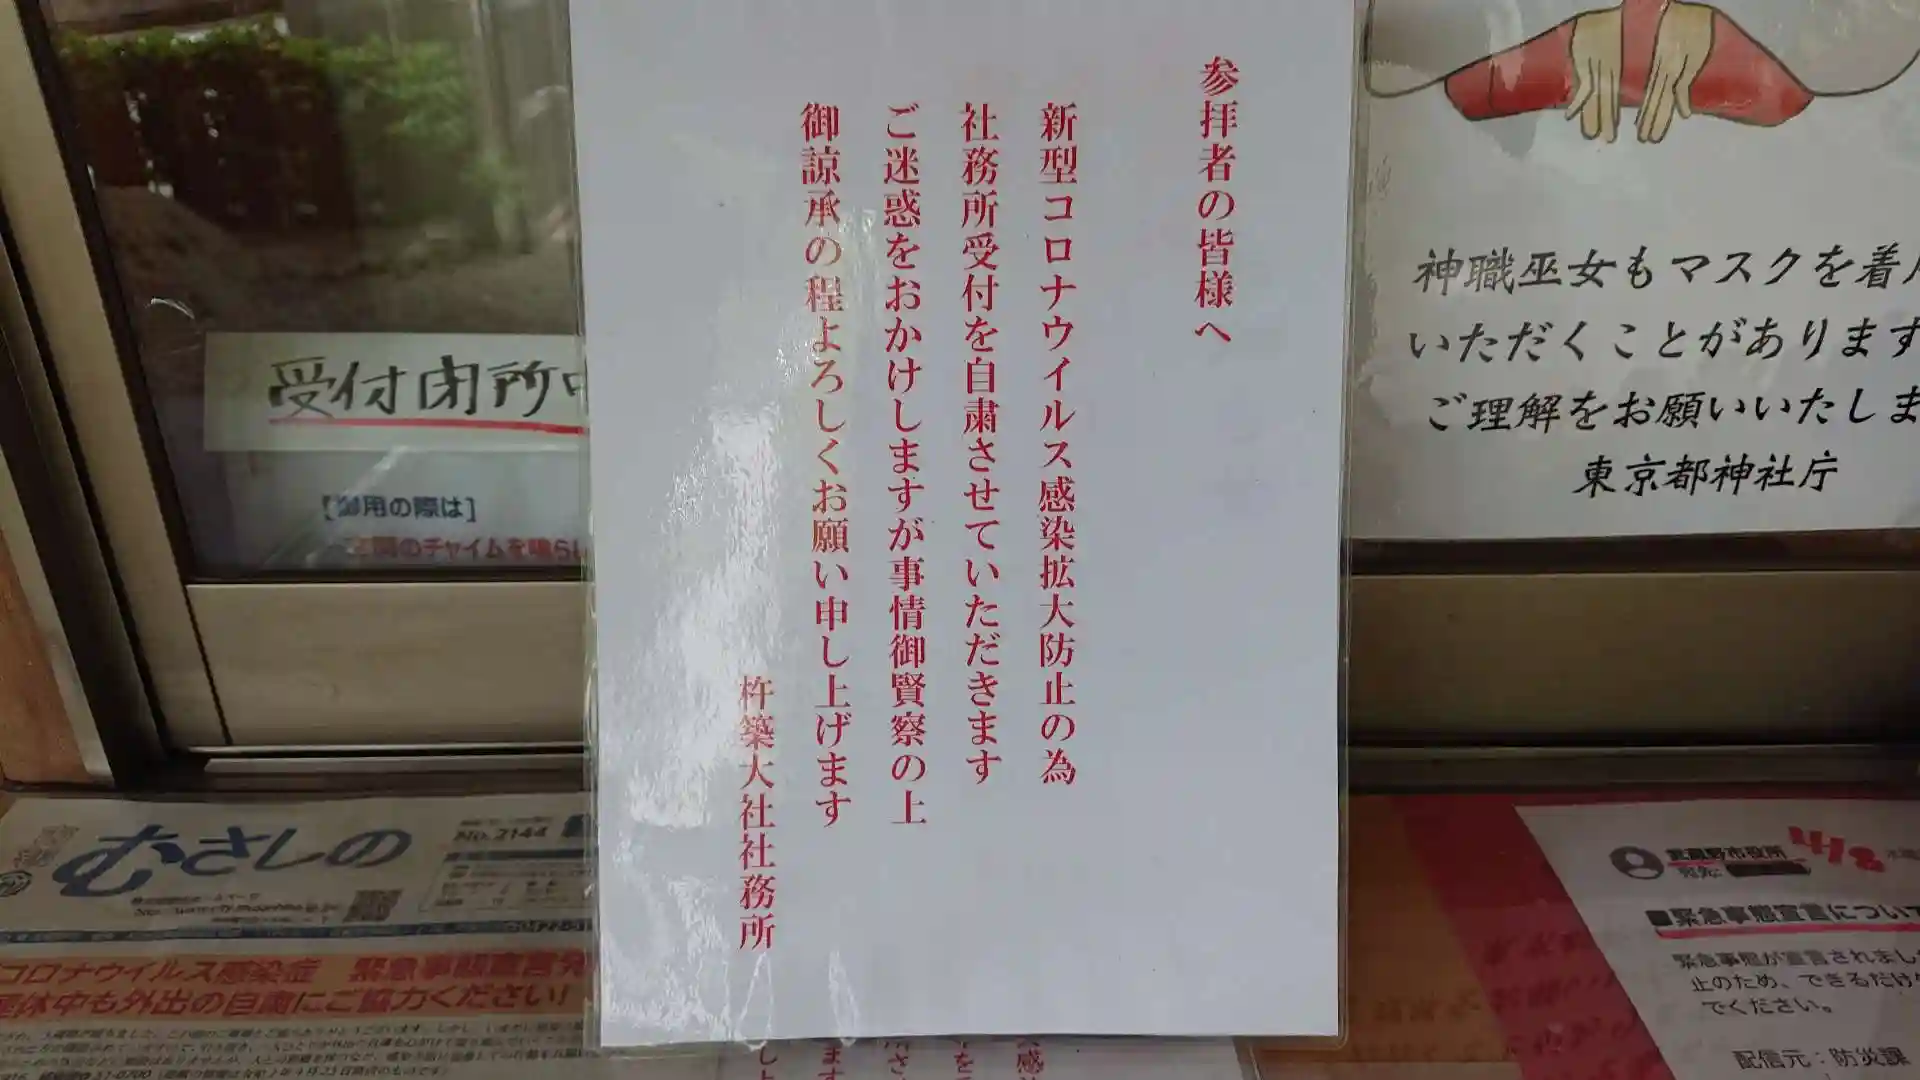 参拝者の皆様へ
新型コロナウイルス感染拡大防止の為
社務所受付を自粛させていただきます
ご迷惑をおかけしますが事情御賢察の上
御諒承の程よろしくお願い申し上げます
杵築大社社務所
神職巫女もマスクを着用
いただくことがあります
ご理解をお願いいたしま
東京都神社庁
受付閉所中
【御用の際は】
玄関のチャイムを鳴らし
むさしの
No.2144
コロナウイルス感染症 緊急事態宣言発
連休中も外出の自粛にご協力ください!
武蔵野市役所
宛先:
■緊急事態宣言について
緊急事態が宣言されまし
止のため、できるだけ
でください。
配信元:防災課